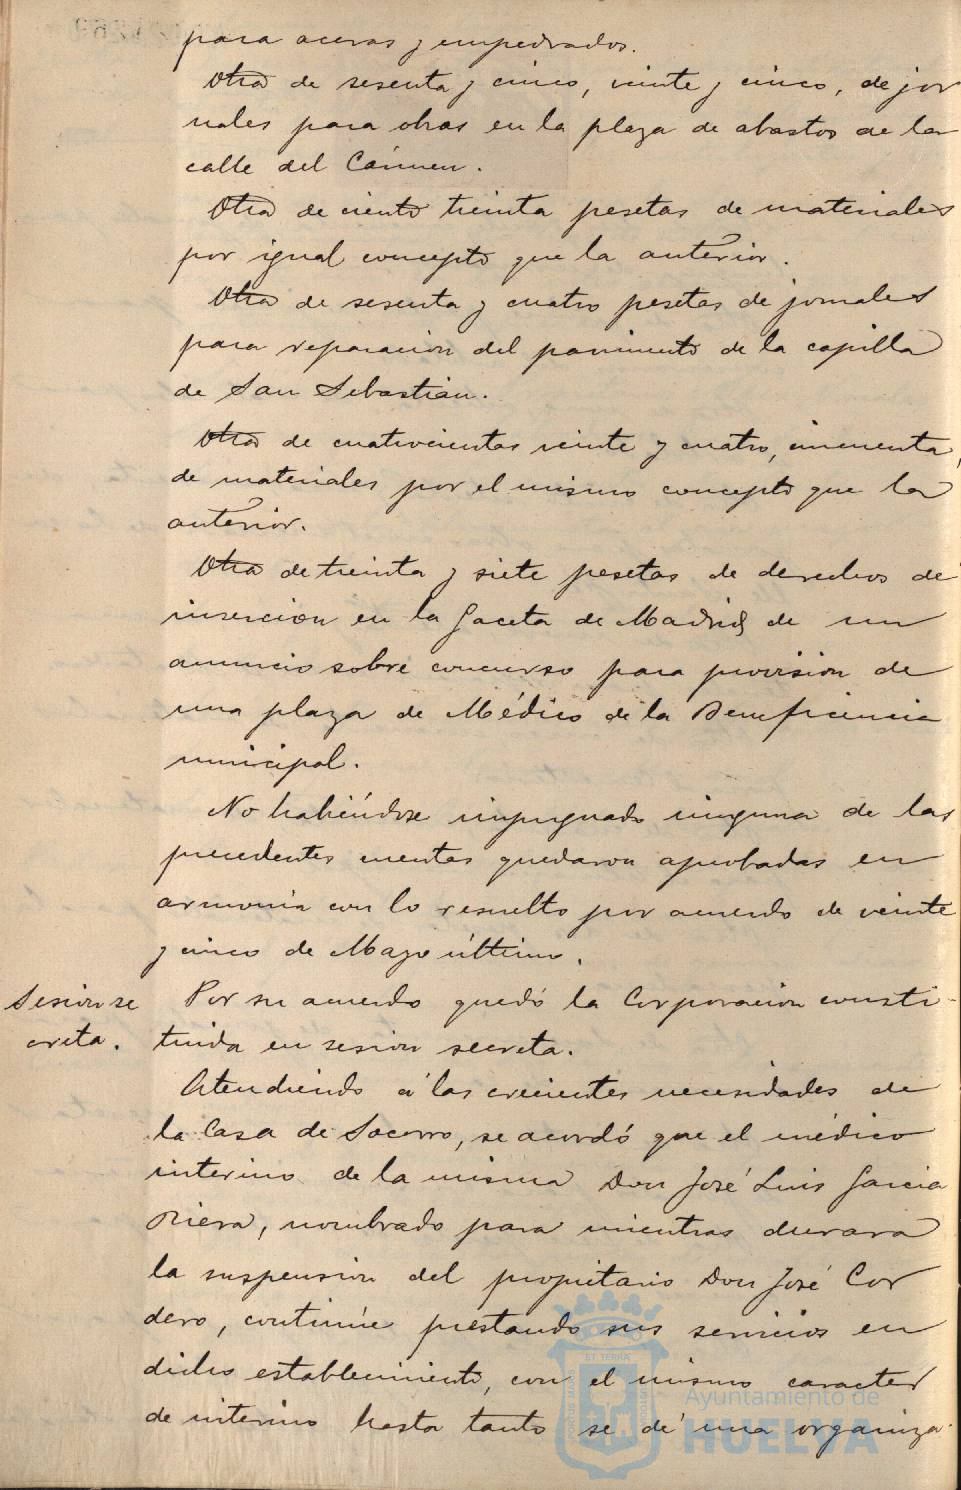 para aceras y empedrados.
Otra de sesenta y cinco, veinte y cinco, de jor
nales para obras en la plaza de abastos de la
calle del Cármen.
Otra de ciento treinta pesetas de materiales
por igual concepto que la anterior.
Otra de sesenta y cuatro pesetas de jornales
para reparacion del pavimento de la capilla
de San Sebastian.
Otra de cuatrocientas veinte y cuatro, cincuenta,
de materiales por el mismo concepto que la
anterior.
Otra de treinta y siete pesetas de derechos de
insercion en la Gaceta de Madrid de un
anuncio sobre concurso para provision de
una plaza de Médico de la Beneficencia
municipal.
No habiéndose impugnado ninguna de las
precedentes cuentas quedaron aprobadas en
armonia con lo resuelto por acuerdo de veinte
y cinco de Mayo último.
Sesion se
creta.
Por su acuerdo quedó la Corporacion consti-
tuida en sesion secreta.
Atendiendo á las crecientes necesidades de
la Casa de Socorro, se acordó que el médico
interino de la misma Don José Luis Garcia
Riera, nombrado para mientras durara
la suspension del propietario Don José Cor
dero, continúe prestando sus servicios en
dicho establecimiento, con el mismo caracter
de interino hasta tanto se dé una organiza-
Ayuntamiento de
HUELVA